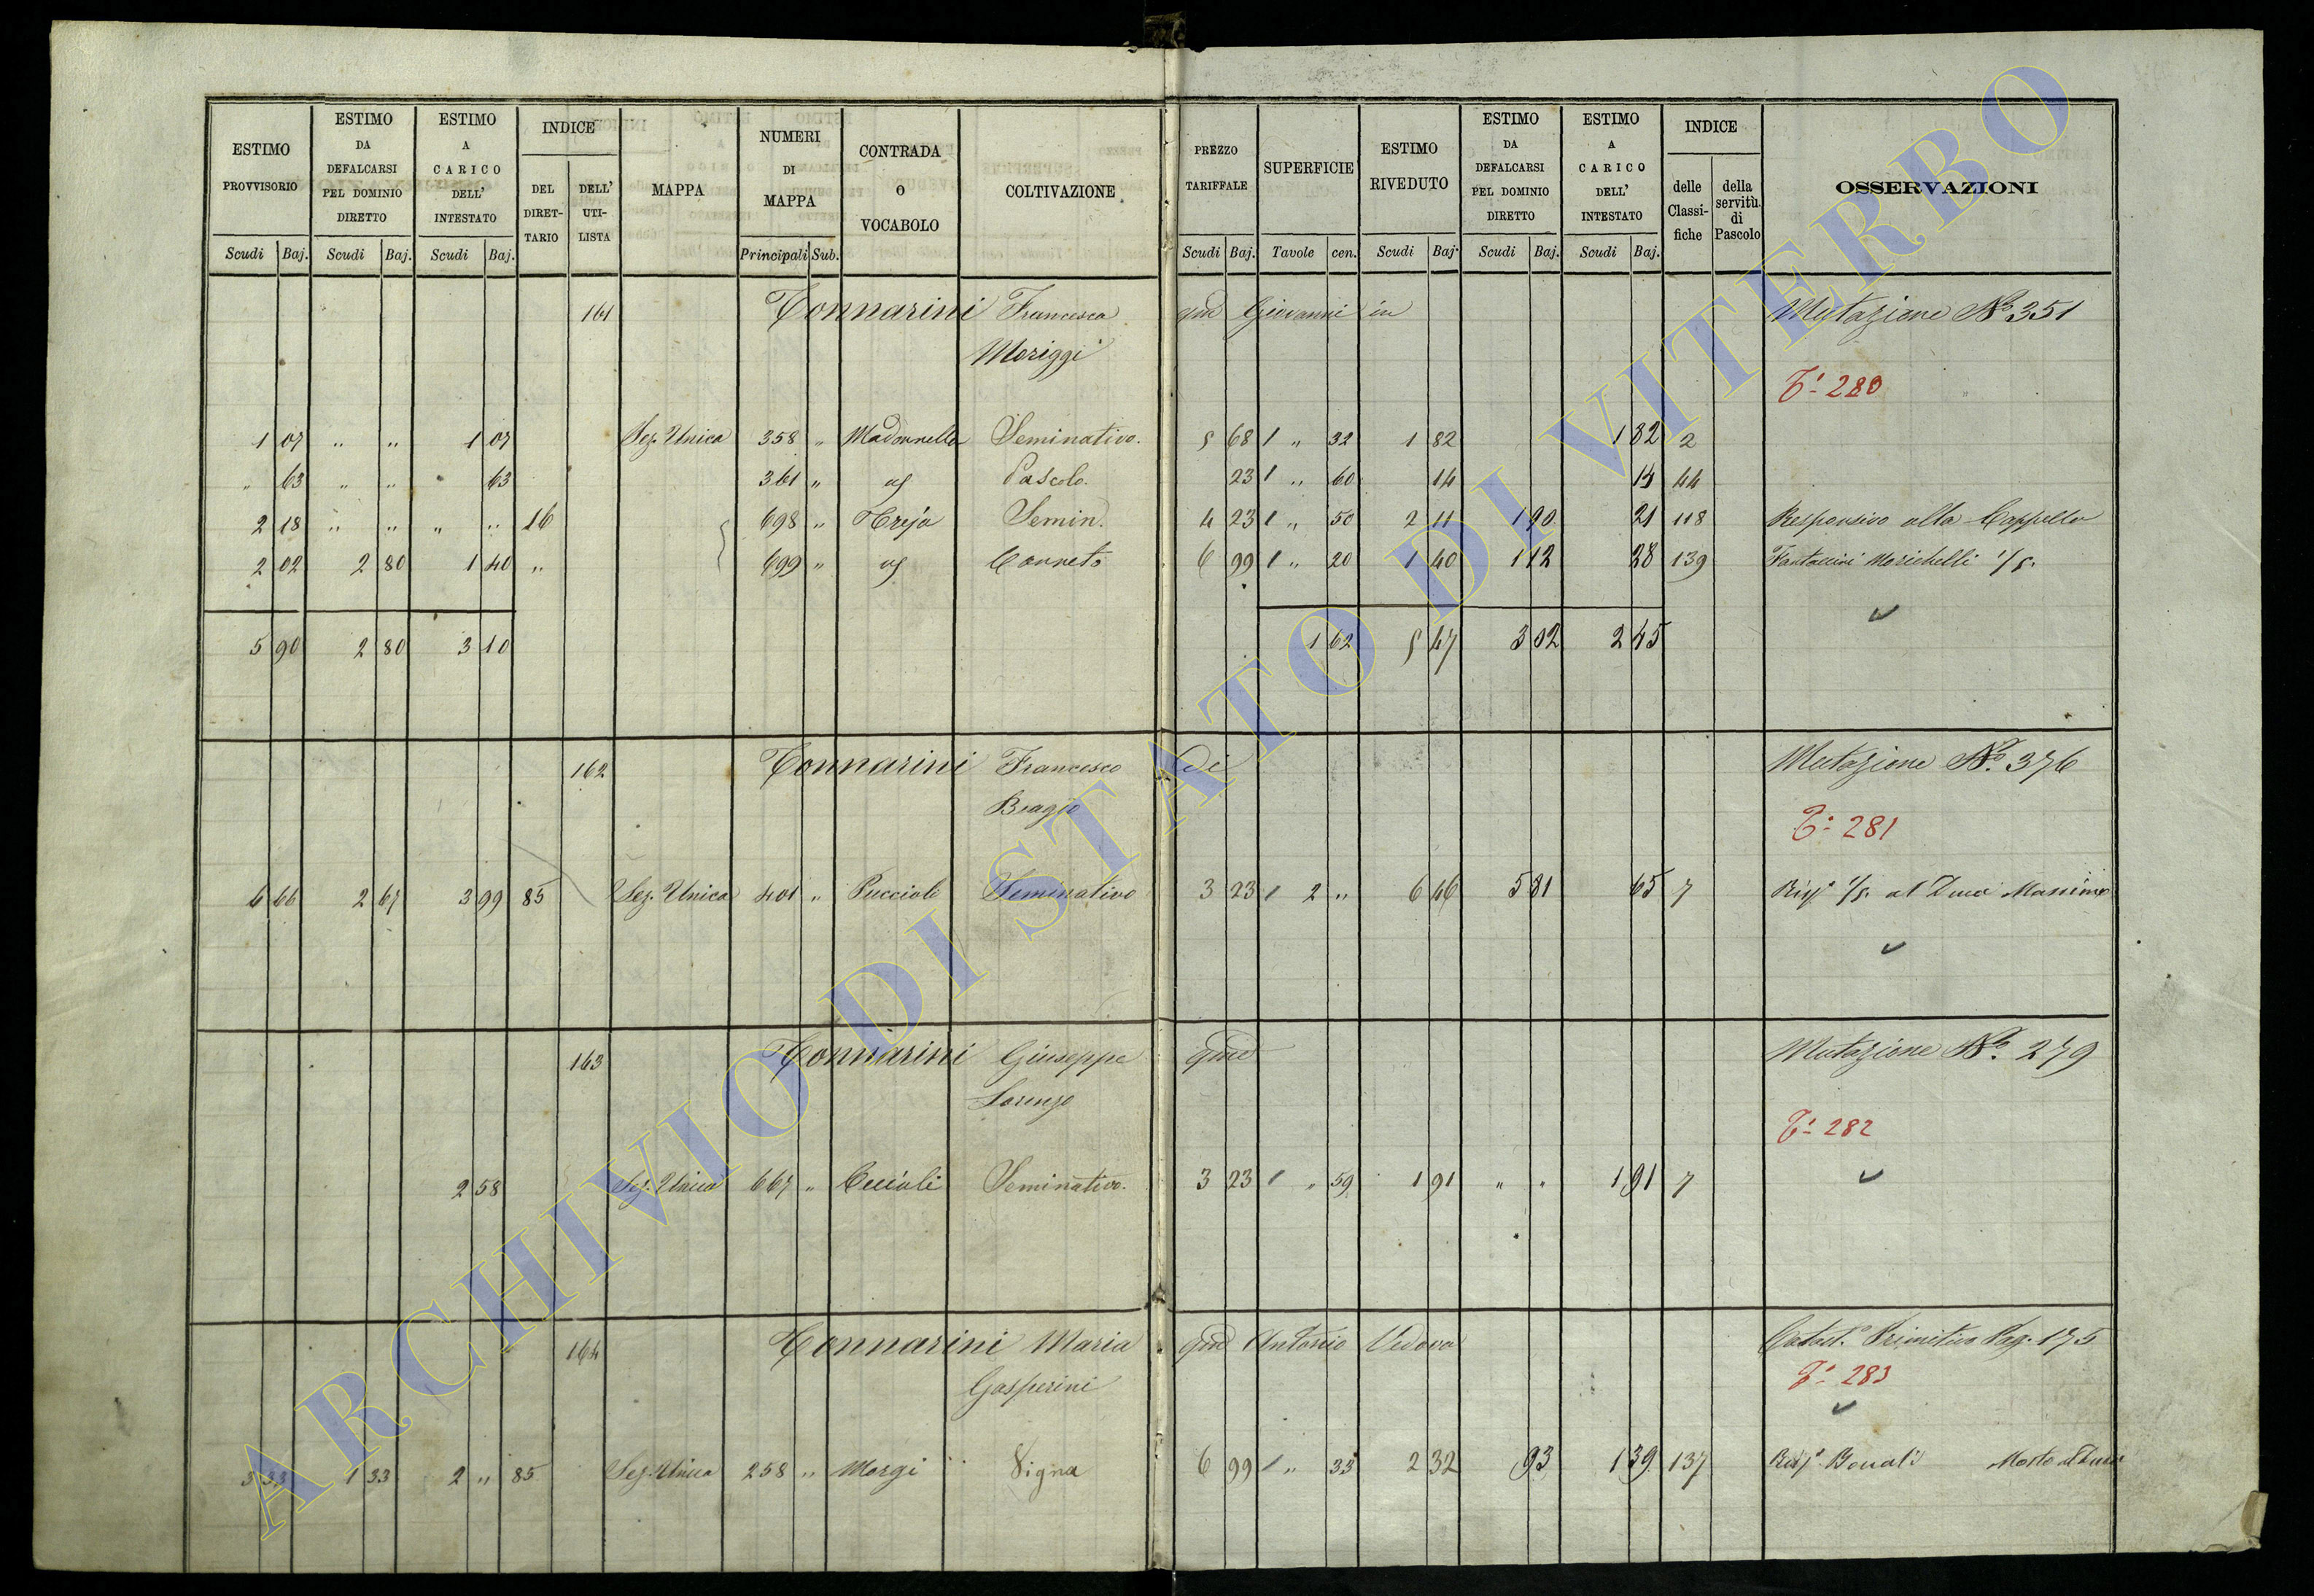 ESTIMO PROVVISORIO
ESTIMO DA DEFALCARSI PEL DOMINIO DIRETTO
ESTIMO A CARICO DELL' INTESTATO
INDICE
DEL DIRET- TARIO
DELL' UTI- LISTA
MAPPA
NUMERI DI MAPPA
CONTRADA O VOCABOLO
COLTIVAZIONE
PREZZO TARIFFALE
SUPERFICIE
ESTIMO RIVEDUTO
ESTIMO DA DEFALCARSI PEL DOMINIO DIRETTO
ESTIMO A CARICO DELL' INTESTATO
INDICE
delle Classi- fiche
della servitù. di Pascolo
OSSERVAZIONI
Scudi Baj. Scudi Baj. Scudi Baj. Principali Sub. Scudi Baj. Tavole cen. Scudi Baj. Scudi Baj. Scudi Baj.
161 Tonnarini Francesca qm Giovanni in Mutazione No 351
Moriggi
T.i 280
1 07 " " 1 07 Sez. Unica 358 " Madonnella Seminativo. 5 68 1 " 32 1 82 1 82 2
" 63 " " " 63 361 " " Pascolo. 23 1 " 60 14 14 44
2 18 " " " " 16 698 " Treja Semin. 4 23 1 " 50 2 11 1 90 21 118 Responsivo alla Cappella
2 02 2 80 1 40 " 699 " " Canneto 6 99 1 " 20 1 40 1 12 28 139 Fantaccini Morichelli 1/5.
5 90 2 80 3 10 1 62 5 47 3 02 2 45
162 Tonnarini Francesco di Mutazione No. 376
Biagio
T.i 281
6 66 2 67 3 99 85 Sez. Unica 401 " Pucciole Seminativo 3 23 1 2 " 6 46 5 81 65 7 Risp. 1/5. al Duca Massimo
163 Tonnarini Giuseppe qm Mutazione No. 279
Lorenzo
T.i 282
2 58 Sez. Unica 667 " Cecioli Seminativo. 3 23 1 " 59 1 91 " " 1 91 7
164 Tonnarini Maria qm Antonio Vedova Catast.o Primitivo Pag. 175
Gasperini
T.i 283
3 33 1 33 2 " 85 Sez. Unica 258 " Morgi Vigna 6 99 1 " 33 2 32 93 1 39 137
ARCHIVIO DI STATO DI VITERBO